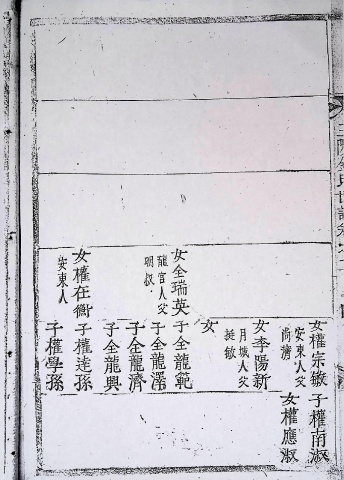 女權宗鏇 子權南淑
安東人父
尚濟
女權應淑
女李陽新
月城人父
挺敏
女
女全瑞英 子全龍範
龍宮人父
明叔
子全龍澤
子全龍濟
子全龍興
女權在衡 子權達孫
安東人
子權學孫